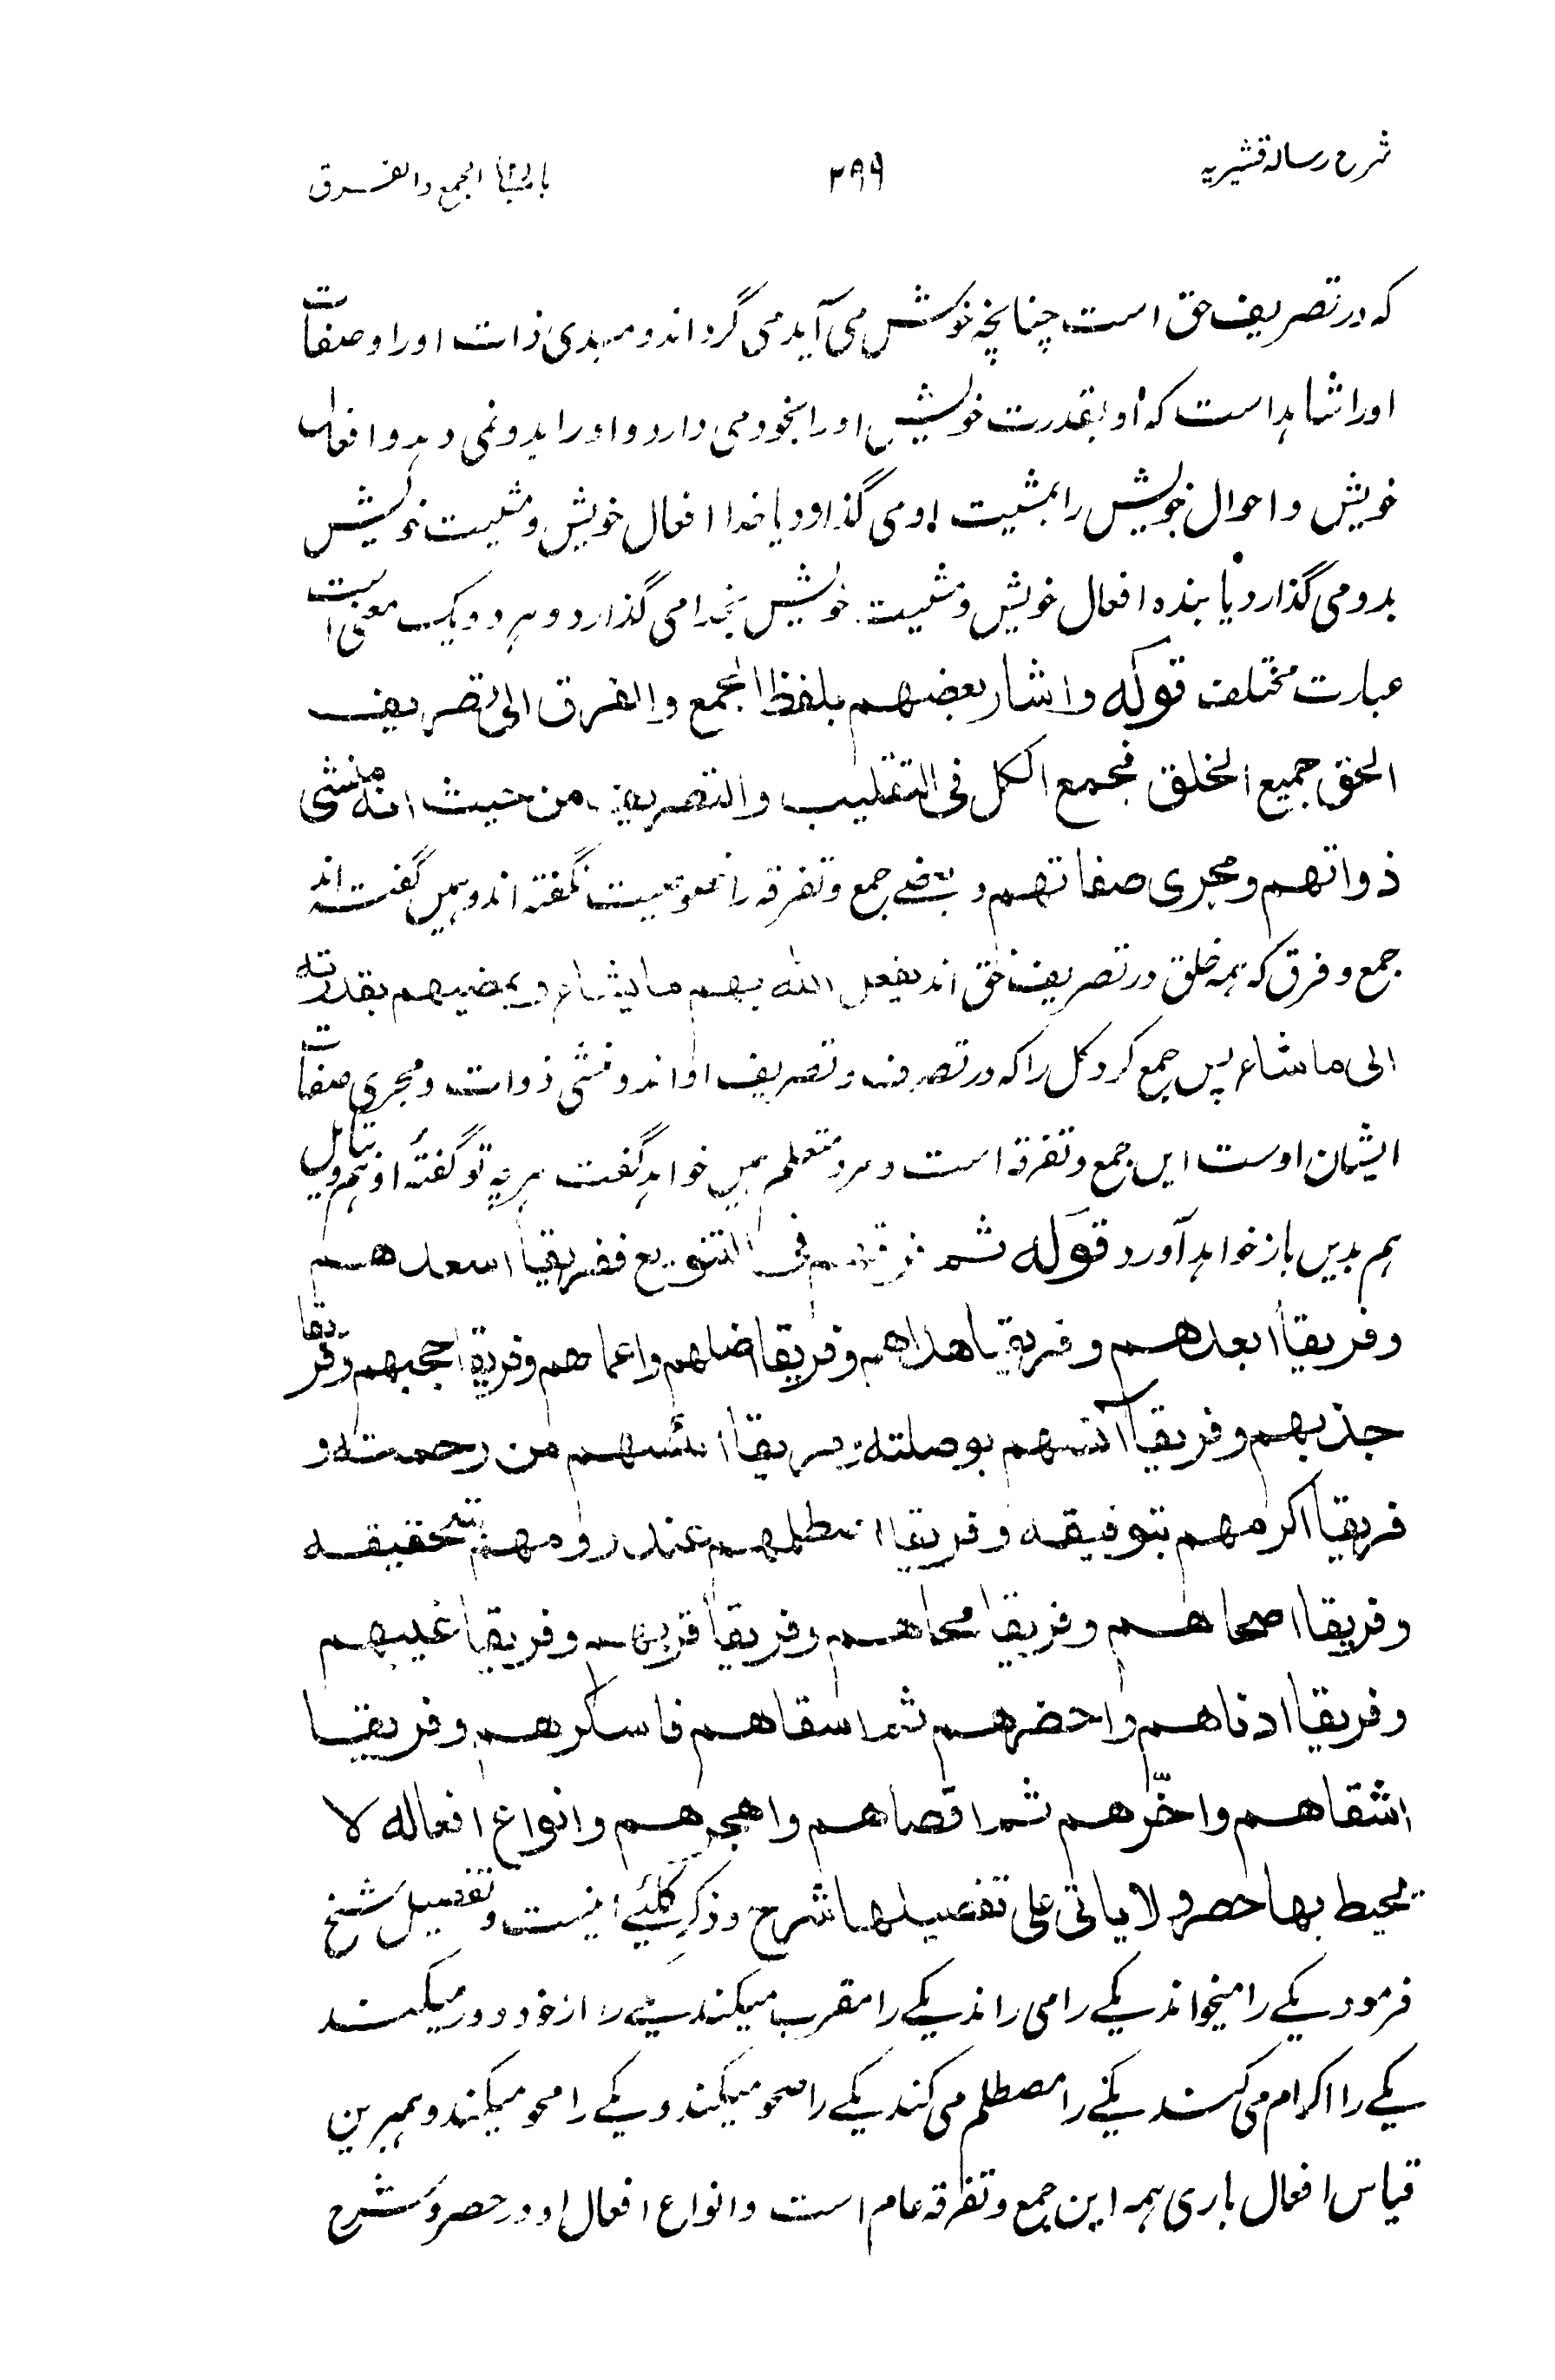 شرح رسالہ قشیریہ ۳۹۹ الجمع والفرق
کہ در تصریف حق است چنانچہ خوش می آید می گرداند و مبدئ ذات او را و صفات
او را شاہد است کہ او بقدرت خویش او را بخود می دارد و او را بدو نمی دہد و افعال
خویش و احوال خویش را بمشیت او می گذارد یا خدا افعال خویش و مشیت خویش
بدو می گذارد یا بندہ افعال خویش و مشیت خویش بخدا می گذارد و ہر دو یک معنی است
عبارت مختلف قوله واشار بعضهم بلفظ الجمع والفرق الى تصريف
الحق جميع الخلق فجمع الكل في التقليب والتصريف من حيث انه منشى
ذواتهم ومجرى صفاتهم و بعضے جمع و تفرقہ را خصوصیت نگفتہ اند و ہمیں گفتہ اند
جمع و فرق کہ ہمہ خلق در تصریف حق اند یفعل الله بهم ما یشاء و یمضیهم بقدرته
الی ما شاء پس جمع کرد کل را کہ در تصرف و تصریف او اند و منشی ذوات و مجری صفات
ایشان اوست ایں جمع و تفرقہ است و مرد متعلم ہمیں خواہد گفت ہرچہ تو گفتۂ او
ہم بدیں باز خواہد آورد قوله ثم فرقهم في التنويع ففريقا اسعدهم
وفريقا ابعدهم وفريقا هداهم وفريقا اضلهم واعماهم وفريقا حجبهم وفريقا
جذبهم وفريقا آنسهم بوصلته وفريقا آيسهم من رحمته و
فريقا اكرمهم بتوفيقه وفريقا اصطلمهم عند رومهم تحقيقه
وفريقا اصحاهم وفريقا محاهم وفريقا قربهم وفريقا غيبهم
وفريقا ادناهم واحضرهم ثم اسقاهم فاسكرهم وفريقا
اشقاهم واخّرهم ثم اقصاهم واهجرهم وانواع افعاله لا
يحيط بها حصر ولا ياتى على تفصيلها شرح و ذکر کلئے نیست و تفصیل شیخ
فرمود یکے را میخواند یکے را می راند یکے را مقرب میکند یکے را از خود دور میکند
یکے را اکرام می کند یکے را مصطلم می کند یکے را صحو میکند و یکے را محو میکند و ہمبرین
قیاس افعال باری ہمہ این جمع و تفرقہ عام است و انواع افعال او در حصر و شرح